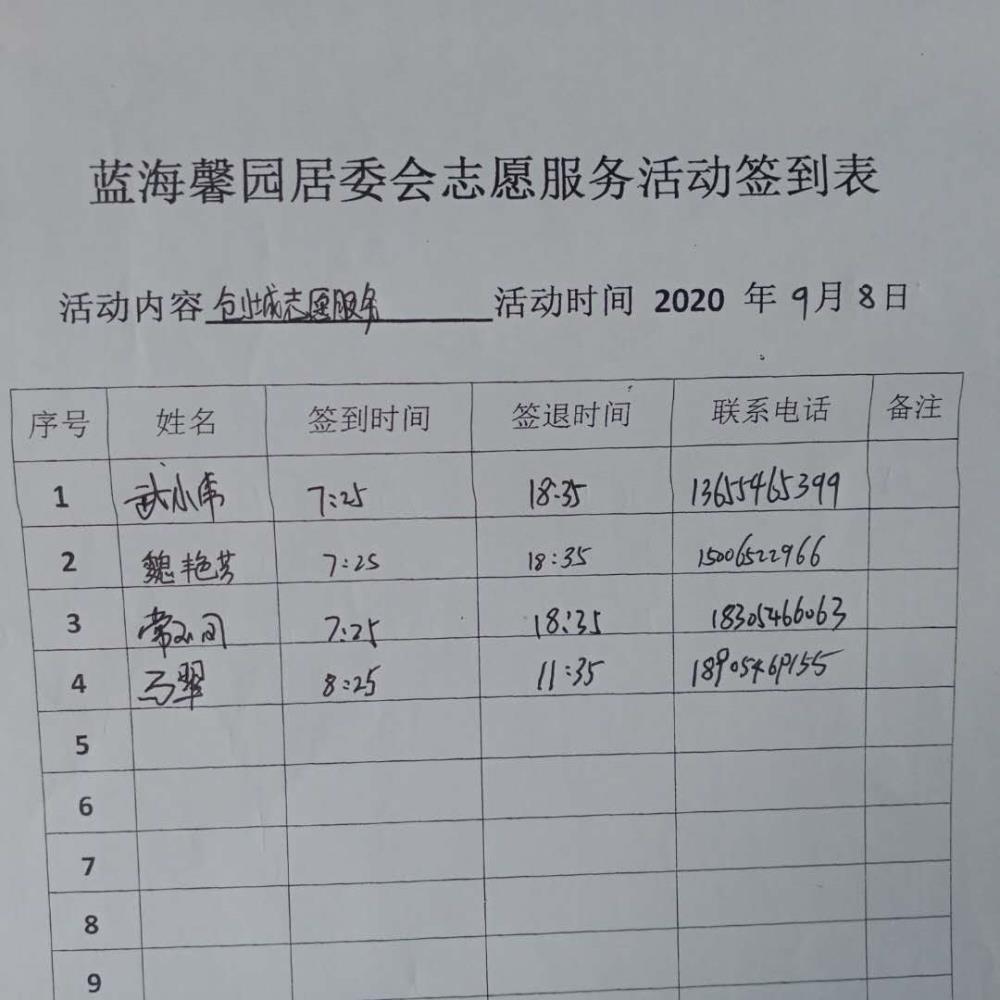 蓝海馨园居委会志愿服务活动签到表
活动内容 创城志愿服务 活动时间 2020 年 9月 8日
序号 姓名 签到时间 签退时间 联系电话 备注
1 武小伟 7:25 18:35 13655465399
2 魏艳芳 7:25 18:35 15006522966
3 7:25 18:35 18305466063
4 马翠 8:25 11:35
5
6
7
8
9